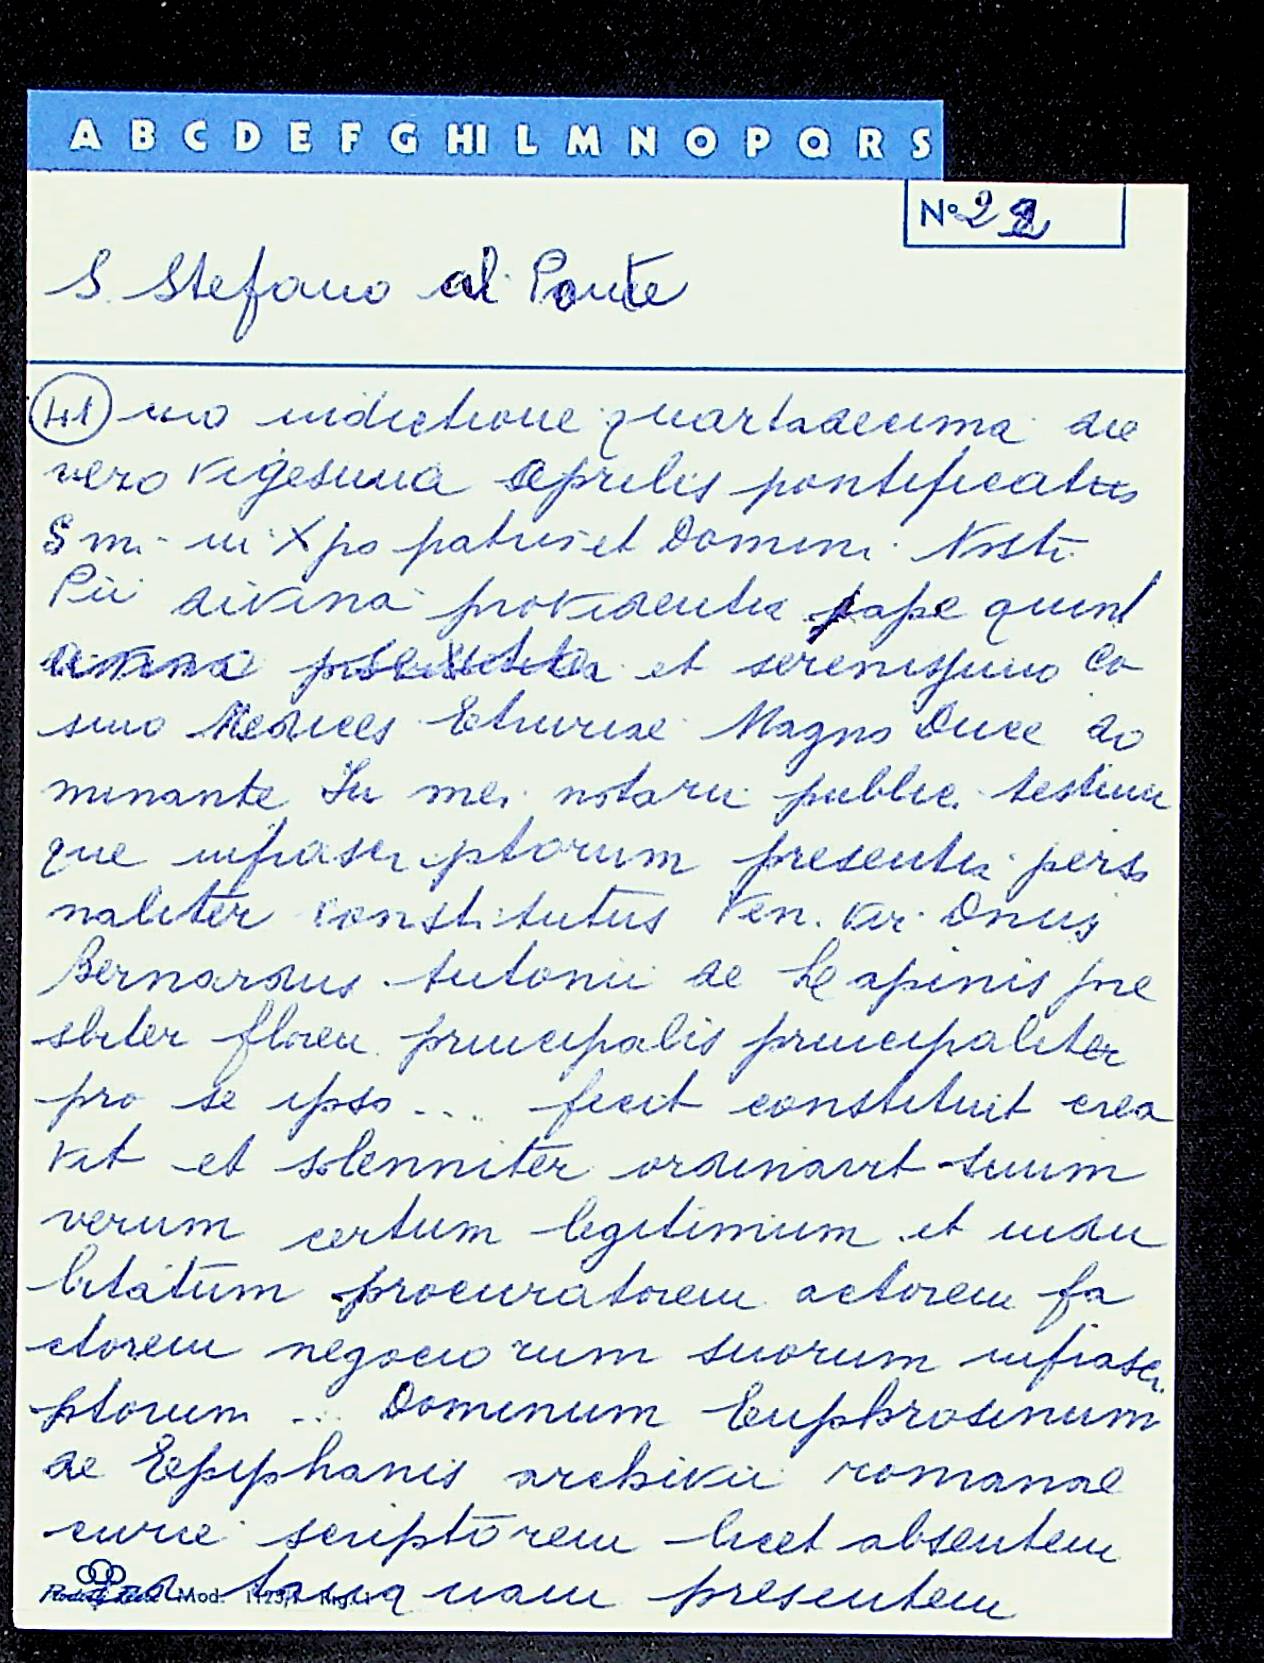 A B C D E F G HI L M N O P Q R S
N° 22
S. Stefano al Ponte
41 mo indictione quartadecima die
vero vigesima Aprilis pontificatus
Smi in Xpo patris et Domini Nostri
Pii divina providentia pape quint
divina et serenissimo Co
smo Medices Etruriae Magno Duce do
minante In mei notarii publici testium
que infrascriptorum presentia perso
naliter constitutus Ven. vir Dnus
Bernardus Antonii de Lapinis pre
sbiter floren principalis principaliter
pro se ipso ... fecit constituit crea
vit et solenniter ordinavit suum
verum certum legitimum et indu
bitatum procuratorem actorem fa
ctorem negociorum suorum infrascri
ptorum ... Dominum Euphrosinum
de Epiphanis archivii romanae
curie scriptorem licet absentem
tamquam presentem
Mod.